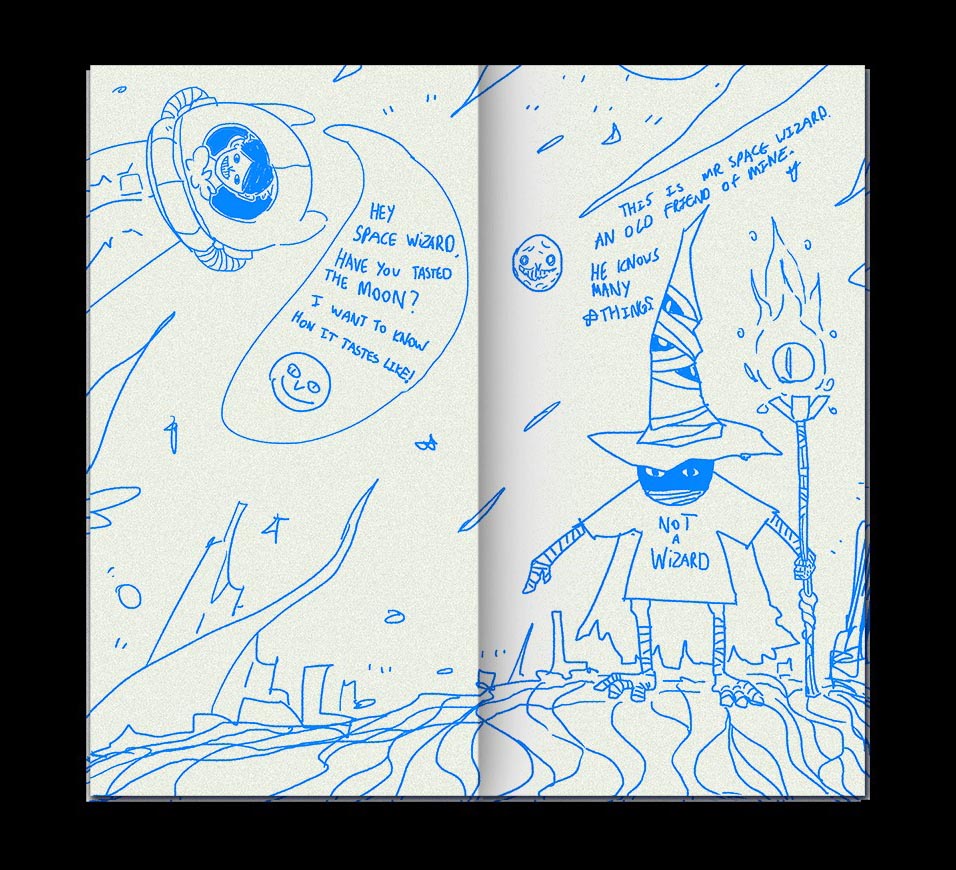 HEY
SPACE WIZARD,
HAVE YOU TASTED
THE MOON?
I WANT TO KNOW
HOW IT TASTES LIKE!
THIS IS MR SPACE WIZARD.
AN OLD FRIEND OF MINE.
HE KNOWS
MANY
THINGS
NOT
A
WIZARD